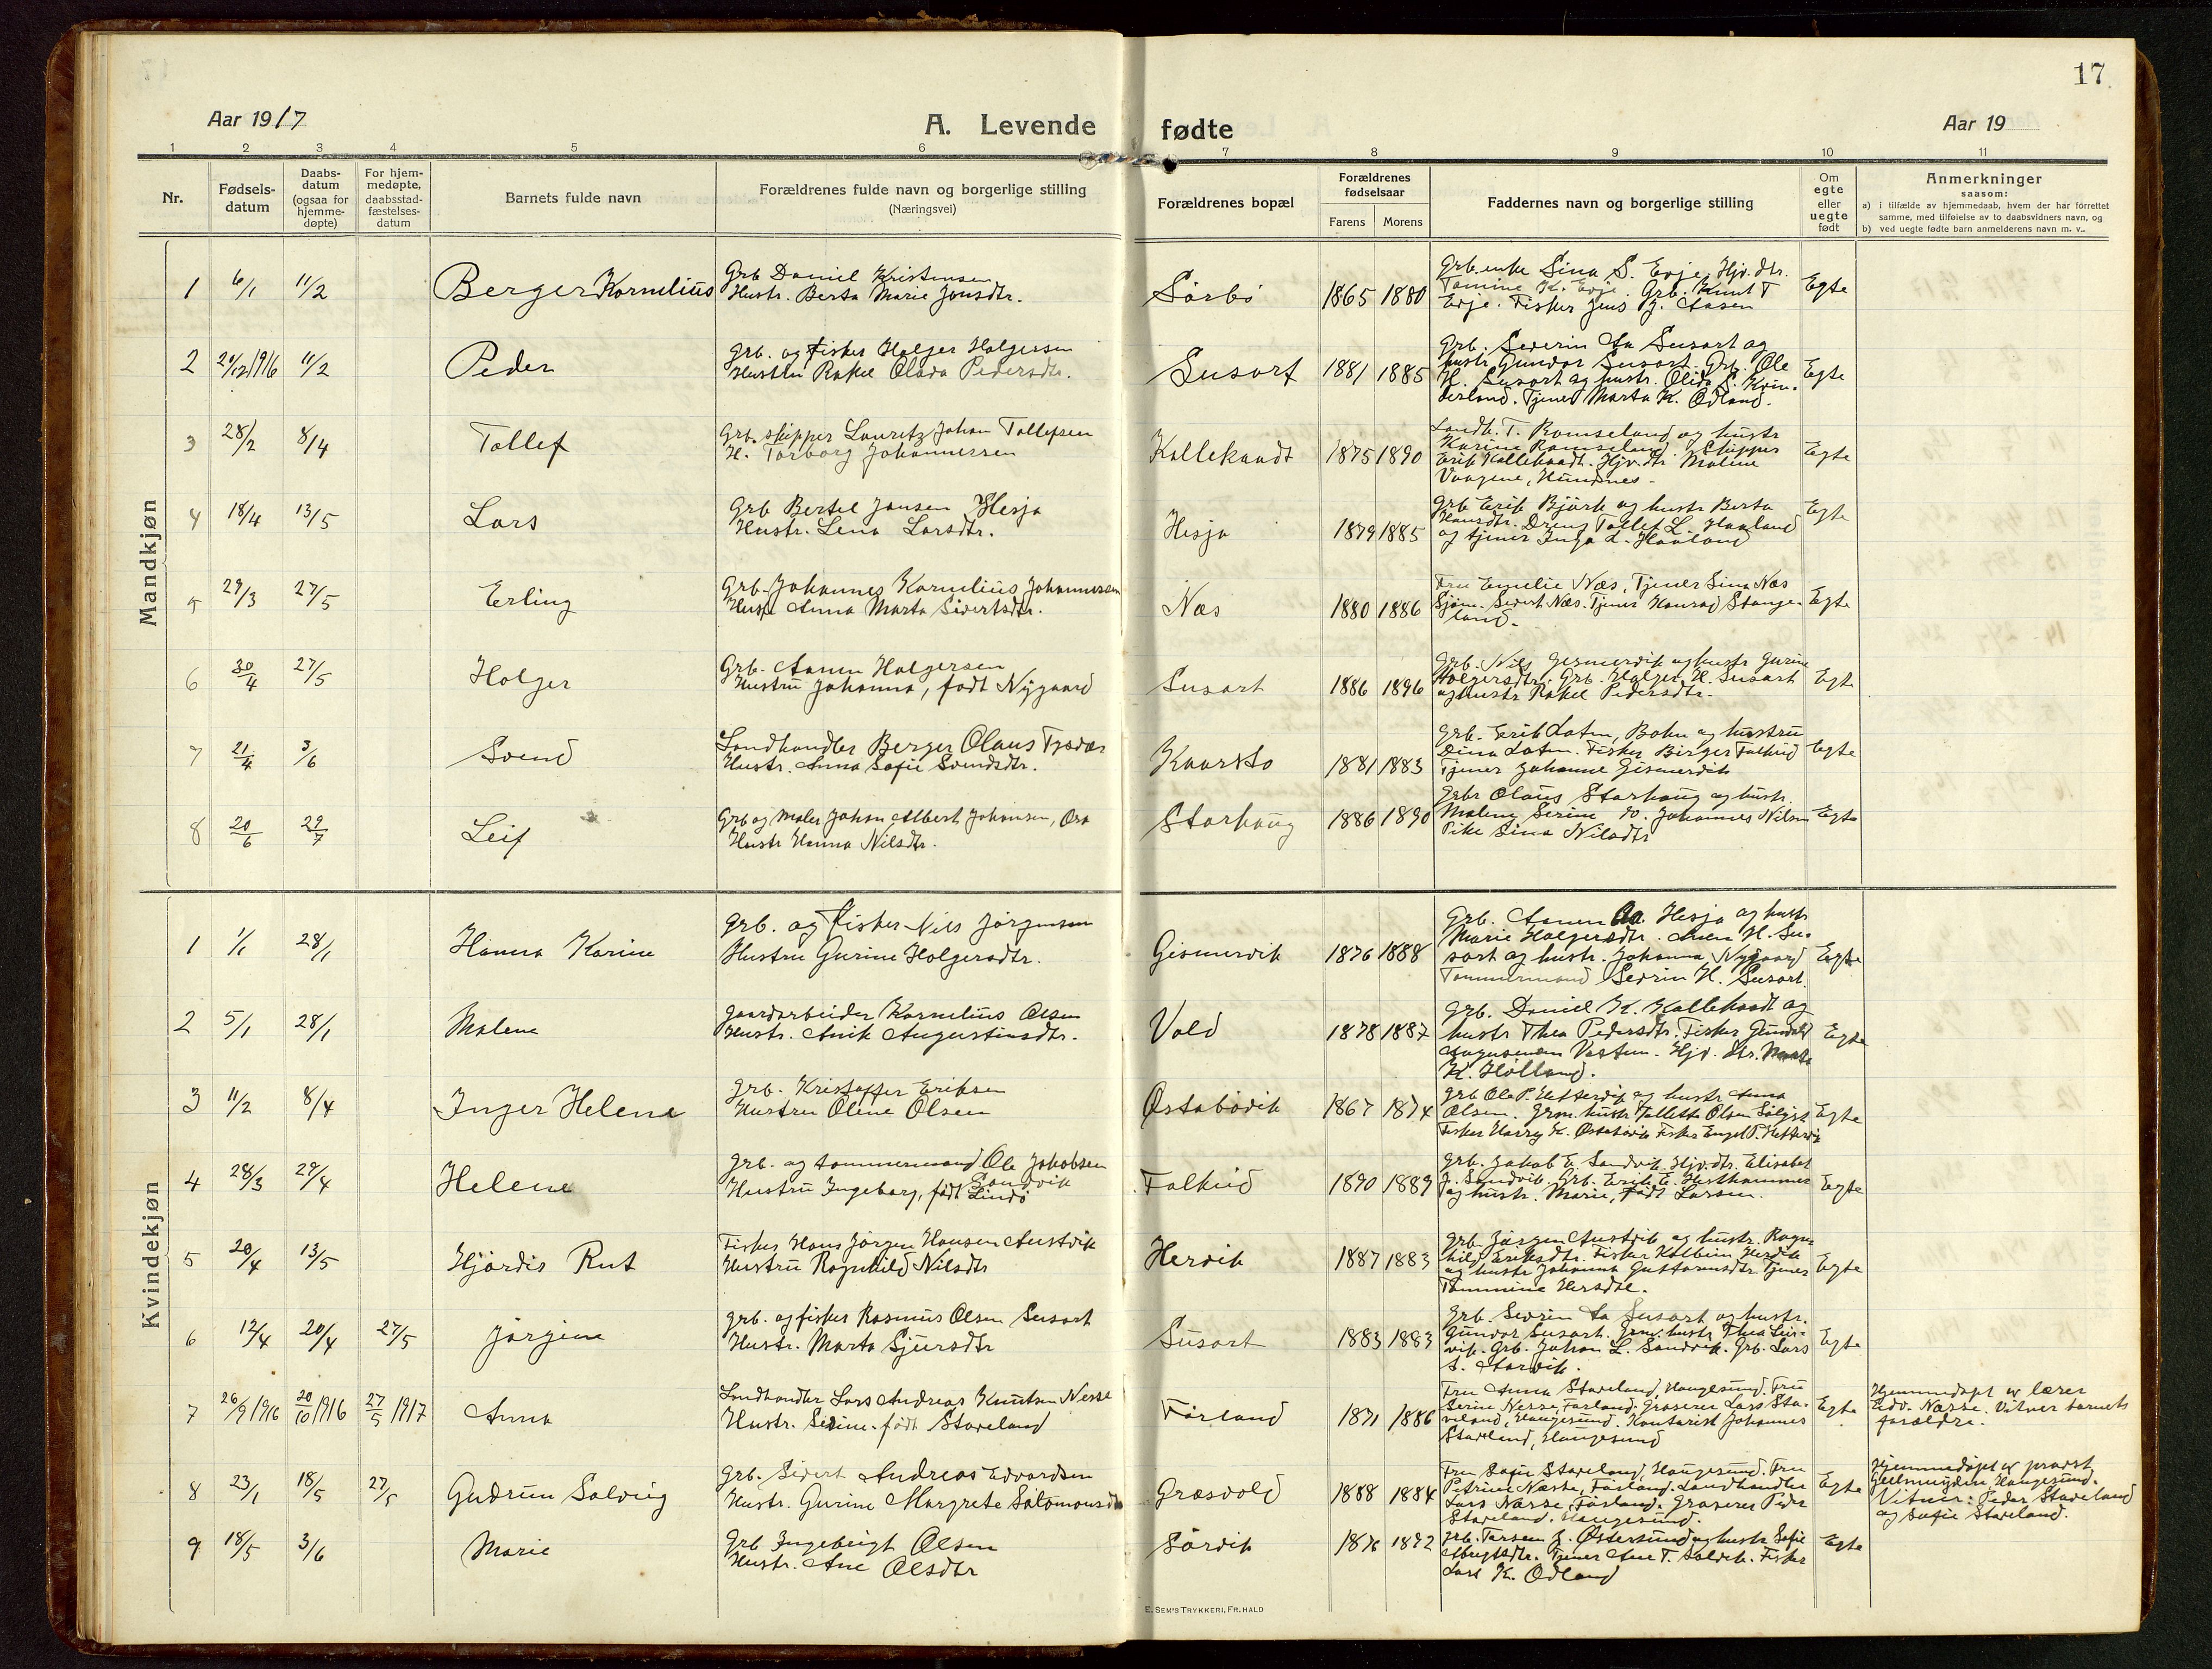 17
Aar 1917
A. Levende fødte
Aar 19
1 2 3 4 5 6 7 8 9 10 11
Nr.
Fødsels-
datum
Daabs-
datum
(ogsaa for
hjemme-
døpte)
For hjem-
medøpte,
daabsstad-
fæstelses-
datum
Barnets fulde navn
Forældrenes fulde navn og borgerlige stilling
(Næringsvei)
Forældrenes bopæl
Forældrenes
fødselsaar
Farens Morens
Faddernes navn og borgerlige stilling
Om
egte
eller
uegte
født
Anmerkninger
saasom:
a) i tilfælde av hjemmedaab, hvem der har forrettet
samme, med tilføielse av to daabsvidners navn, og
b) ved uegte fødte barn anmelderens navn m. v..
Mandkjøn
1 6/1 11/2 Berger Kornelius
Grb Daniel Kristensen
Hustr. Berta Marie Jonsdtr.
Sørbø 1865 1880
Grb.enke Sina S. Evje. Hjv. dtr.
Tomine K. Evje. Grb. Knut T
Evje. Fisker Jens J. Aasen
Egte
2 21/12 1916 11/2 Peder
Grb. og Fisker Holger Holgersen
Hustru Rakel Olava Pedersdtr.
Susort 1881 1885
Grb. Severin Aa Susort og
hustr. Gundor Susort. Grb. Ole
H. Susort og hustr. Olida S. Kvin-
desland. Tjener Marta K. Ødland.
Egte
3 28/2 8/4 Tollef
Grb. skipper Lauritz Johan Tollefsen
H. Torborg Johannessen
Kallekaadt 1875 1890
Landh. T. Ramseland og hustr
Karina Ramseland. Skipper
Erik Kallekaadt. Hjv. dtr Malene
Vaagene,
Egte
4 18/4 13/5 Lars
Grb Bertel Jansen Hesja
Hustr. Lena Larsdtr.
Hesja 1879 1885
Grb Erik Bjørk og hustr Berta
Hansdtr. Dreng Tollef L. Haaland
og tjener Inga L. Haaland
Egte
5 29/3 27/5 Erling
Grb. Johannes Kornelius Johannessen
Hustr Anna Marta Sivertsdtr.
Næs 1880 1886
Fru Emelie Næs, Tjener Sina Næs
Sjøm. Sivert Næs. Tjener Konrad Stange-
land.
Egte
6 30/4 27/5 Holger
Grb. Aanen Holgersen
Hustru Johanna, født Nygaard
Susort 1886 1896
Grb. Nils Gismervik og hustr Gurine
Holgersdtr. Grb. Holger H. Susort
og hustr Rakel Pedersdtr.
Egte
7 21/4 3/6 Svend
Landhandler Berger Olaus
Hustr. Anna Sofie Svendsdtr.
Kaarstø 1881 1883
Grb. Erik Bokn og hustru
Dina Fisker Birger Falkeid
Tjener Johanne Gismervik
Egte
8 20/6 29/7 Leif
Grb og Maler Johan Albert Johansen,
Hustr Hanna Nilsdtr.
Storhaug 1886 1890
Grbr Olaus Storhaug og hustr.
Maleng Serine do. Johannes Nilsen
Pike Sina Nilsdtr
Egte
Kvindekjøn
1 1/1 28/1 Hanna Karine
Grb. og Fisker Nils Jørgensen
Hustru Gurine Holgersdtr.
Gismervik 1876 1888
Grb. Aanen Aa. Hesja og hustr
Marie Holgersdtr. Anen H. Su-
sort og hustr. Johanna Nygaard
Tømmermand Sevrin H. Susort.
Egte
2 5/1 28/1 Malene
Gaardarbeider Kornelius Olsen
Hustr. Anik Augustinsdtr.
Vold 1878 1887
Grb. Daniel K. Kallekaadt og
hustr Thea Pedersdtr. Fisker
Hjv. dtr. Marta
K. Hølland.
Egte
3 11/2 8/4 Inger Helene
Grb. Kristoffer Eriksen
Hustru Oline Olsen
Østabøvik 1867 1874
Grb Ole P. Hettervik og hustr Anna
Olsen. Grm. hustr Tolletta Olsen
Fisker Harry K. Østabøvik Fisker Engel P. Hettervik
Egte
4 28/3 29/4 Helene
Grb. og tømmermand Ole Jakobsen
Sandvik
Hustru Ingeborg, født Lindø
Falkeid 1890 1889
Grb. Jakob E. Sandvik. Hjv. dtr. Elisabet
J. Sandvik. Grb. Erik E. Hesthammer
og hustr. Marie, født Larsen.
Egte
5 20/4 13/5 Hjørdis Rut
Fisker Hans Jørgen Hansen Austvik
Hustru Ragnhild Nilsdtr
Hervik 1887 1883
Grb. Jørgen Austvik og hustr. Ragn-
hild Eriksdtr. Fisker Kolbein Hervik
og hustr Johanna Guttormsdtr Tjener
Tommine
Egte
6 12/4 20/4 27/5 Jørgine
Grb. og fisker Rasmus Olsen Susort
Hustr. Marta Sjursdtr
Susort 1883 1883
Grb. Sevrin Aa Susort og hustr.
Gundor Susort. Grm. hustr Thea Leir-
vik. Grb. Johan L. Sandvik. Grb. Lars
Egte
7 26/9 1916 20/10 1916 27/5 1917 Anna
Landhandler Lars Andreas Knutsen Nesse
Hustr. Serine født Staveland
Førland 1871 1886
Fru Anna Staveland, Haugesund. Fru
Serine Nesse, Førland. Groserer Lars Sta-
veland, Haugesund. Kontorist Johannes
Staveland, Haugesund
Egte
Hjemmedøpt av lærer
Edv. Næsse. Vitner barnets
forældre.
8 23/1 18/5 27/5 Gudrun Solveig
Grb. Sivert Andreas Edvardsen
Hustr. Gurine Margrete Salomonsdtr
Græsvold 1888 1884
Fru Sofie Staveland, Haugesund. Fru
Petrine Næsse, Førland. Landhandler
Lars Næsse, Førland. Groserer Peder
Staveland, Haugesund.
Egte
Hjemmedøpt av provst
Gjelmuyden Haugesund.
Vitner: Peder Staveland
og Sofie Staveland.
9 18/5 3/6 Marie
Grb Ingebrigt Olsen
Hustr. Ane Olsdtr
Sørvik 1876 1872
Grb. Torsen J. Østersund og hustr Sofie
Tjener Ane T. Fisker
Lars K. Ødland
Egte
E. SEM'S TRYKKERI, FR.HALD